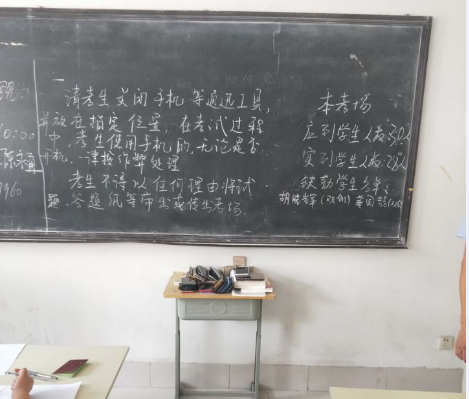 一
请考生关闭手机等通迅工具,
并放在指定位置,在考试过程
中考生使用手机的,无论是否
开机,一律按作弊处理
考生不得以任何理由将试
题、答题纸等带出或传出考场.
本考场
应到学生人数:30人
实到学生人数:28人
缺勤学生名单:
10:00
9960